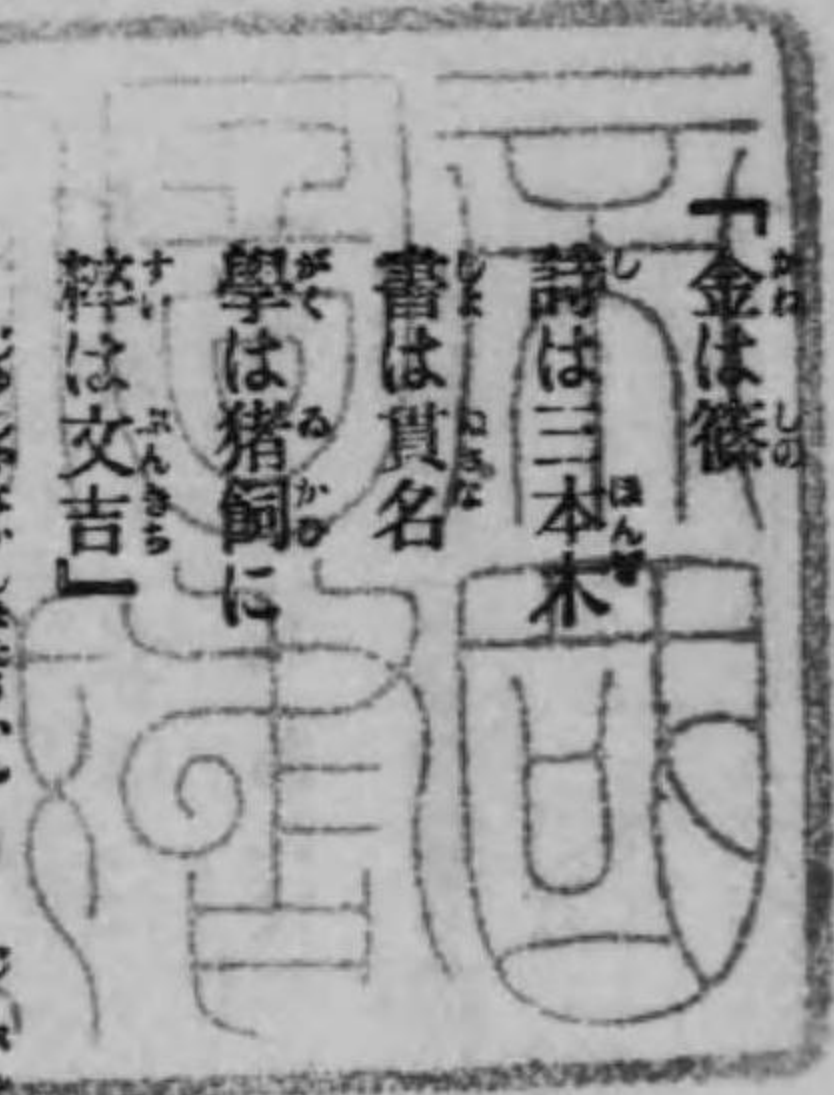 『金は篠
詩は三本木
書は貫名
學は猪飼に
粹は文吉』